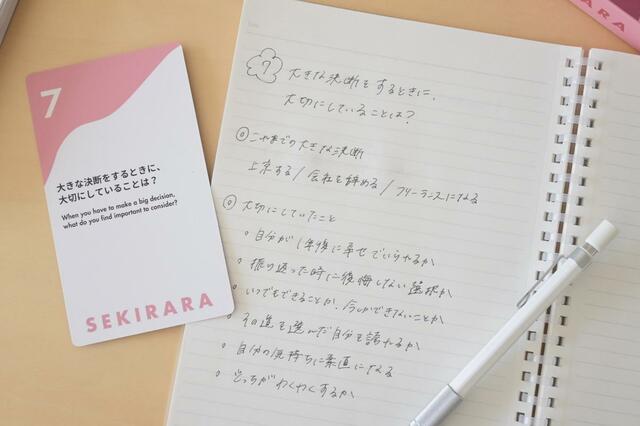 7
大きな決断をするときに、
大切にしていることは?
When you have to make a big decision,
what do you find important to consider?
SEKIRARA
7 大きな決断をするときに、
大切にしていることは?
◎これまでの大きな決断
上京する/会社を辞める/フリーランスになる
◎大切にしていたこと
。自分が1年後に幸せでいられるか
。振り返った時に後悔しない選択か
。いつでもできることか、今しかできないことか
。その道を選んだ自分を誇れるか
。自分の気持ちに素直になる
。どっちがわくわくするか
RARA